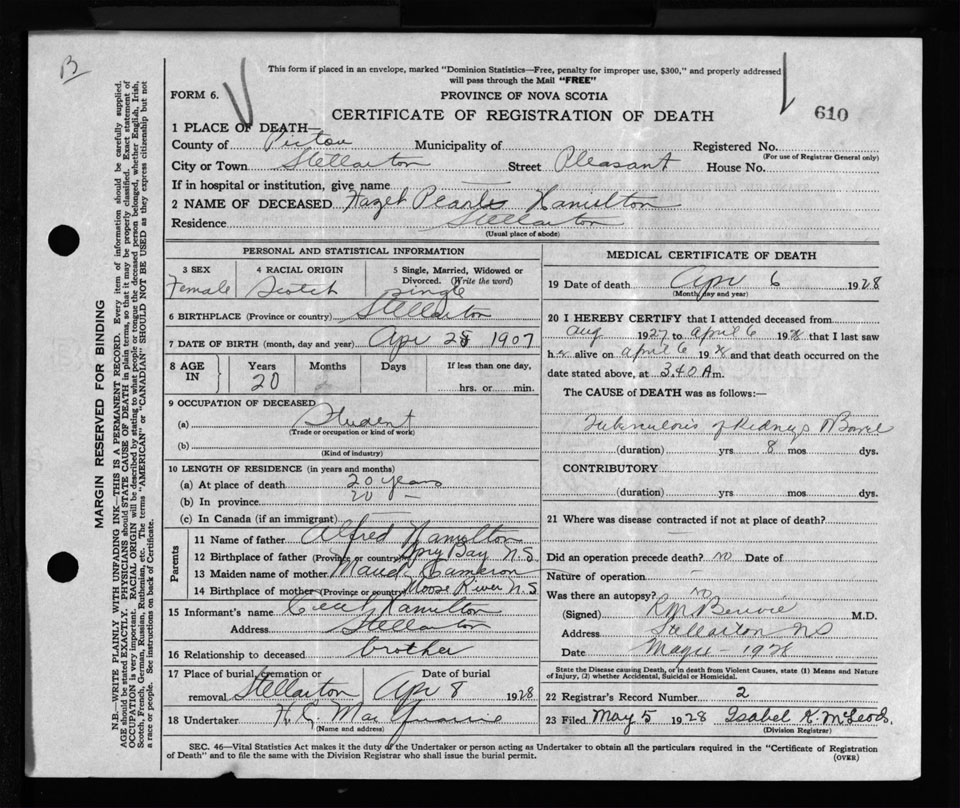 B
This form if placed in an envelope, marked "Dominion Statistics—Free, penalty for improper use, $300," and properly addressed
will pass through the Mail "FREE"
FORM 6. PROVINCE OF NOVA SCOTIA
CERTIFICATE OF REGISTRATION OF DEATH 610
1 PLACE OF DEATH—
County of Pictou Municipality of Registered No.
(For use of Registrar General only)
City or Town Stellarton Street Pleasant House No.
If in hospital or institution, give name —
2 NAME OF DECEASED Hazel Pearle Hamilton
Residence Stellarton
(Usual place of abode)
PERSONAL AND STATISTICAL INFORMATION
3 SEX 4 RACIAL ORIGIN 5 Single, Married, Widowed or
Divorced. (Write the word)
Female Scotch Single
6 BIRTHPLACE (Province or country) Stellarton
7 DATE OF BIRTH (month, day and year) Apr 28 1907
8 AGE IN Years Months Days If less than one day,
20 hrs. or min.
9 OCCUPATION OF DECEASED
(a) Student
(Trade or occupation or kind of work)
(b)
(Kind of industry)
10 LENGTH OF RESIDENCE (in years and months)
(a) At place of death 20 years
(b) In province 20 —
(c) In Canada (if an immigrant)
Parents
11 Name of father Alfred Hamilton
12 Birthplace of father (Province or country) Spry Bay N.S
13 Maiden name of mother Maud Cameron
14 Birthplace of mother (Province or country) Moose River N.S
15 Informant's name Cecil Hamilton
Address Stellarton
16 Relationship to deceased brother
17 Place of burial, cremation or Date of burial
removal Stellarton Apr 8 1928
18 Undertaker H. G. Mac
(Name and address)
MEDICAL CERTIFICATE OF DEATH
19 Date of death Apr 6 1928
(Month, day and year)
20 I HEREBY CERTIFY that I attended deceased from
Aug 1927 to April 6 1928 that I last saw
h er alive on April 6 1928 and that death occurred on the
date stated above, at 3.40 A m.
The CAUSE of DEATH was as follows:—
Tuberculosis of Kidneys & Bowel
(duration) yrs 8 mos dys.
CONTRIBUTORY
(duration) yrs. mos. dys.
21 Where was disease contracted if not at place of death?
—
Did an operation precede death? no Date of
Nature of operation —
Was there an autopsy? no
(Signed) M.D.
Address Stellarton NS
Date 1928
State the Disease causing Death, or in death from Violent Causes, state (1) Means and Nature
of Injury, (2) whether Accidental, Suicidal or Homicidal.
22 Registrar's Record Number 2
23 Filed May 5 1928 Isabel K. McLeod.
(Division Registrar)
SEC. 46—Vital Statistics Act makes it the duty of the Undertaker or person acting as Undertaker to obtain all the particulars required in the "Certificate of Registration
of Death" and to file the same with the Division Registrar who shall issue the burial permit. (OVER)
MARGIN RESERVED FOR BINDING
N.B.—WRITE PLAINLY WITH UNFADING INK—THIS IS A PERMANENT RECORD. Every item of information should be carefully supplied.
AGE should be stated EXACTLY. PHYSICIANS should STATE CAUSE OF DEATH in plain terms, so that it may be properly classified. Exact statement of
OCCUPATION is very important. RACIAL ORIGIN will be described by stating to what people or tongue the deceased person belonged, whether English, Irish,
Scotch, French, German, Russian, Ruthenian, etc. The terms "AMERICAN" or "CANADIAN" SHOULD NOT BE USED as they express citizenship but not
a race or people. See instructions on back of Certificate.